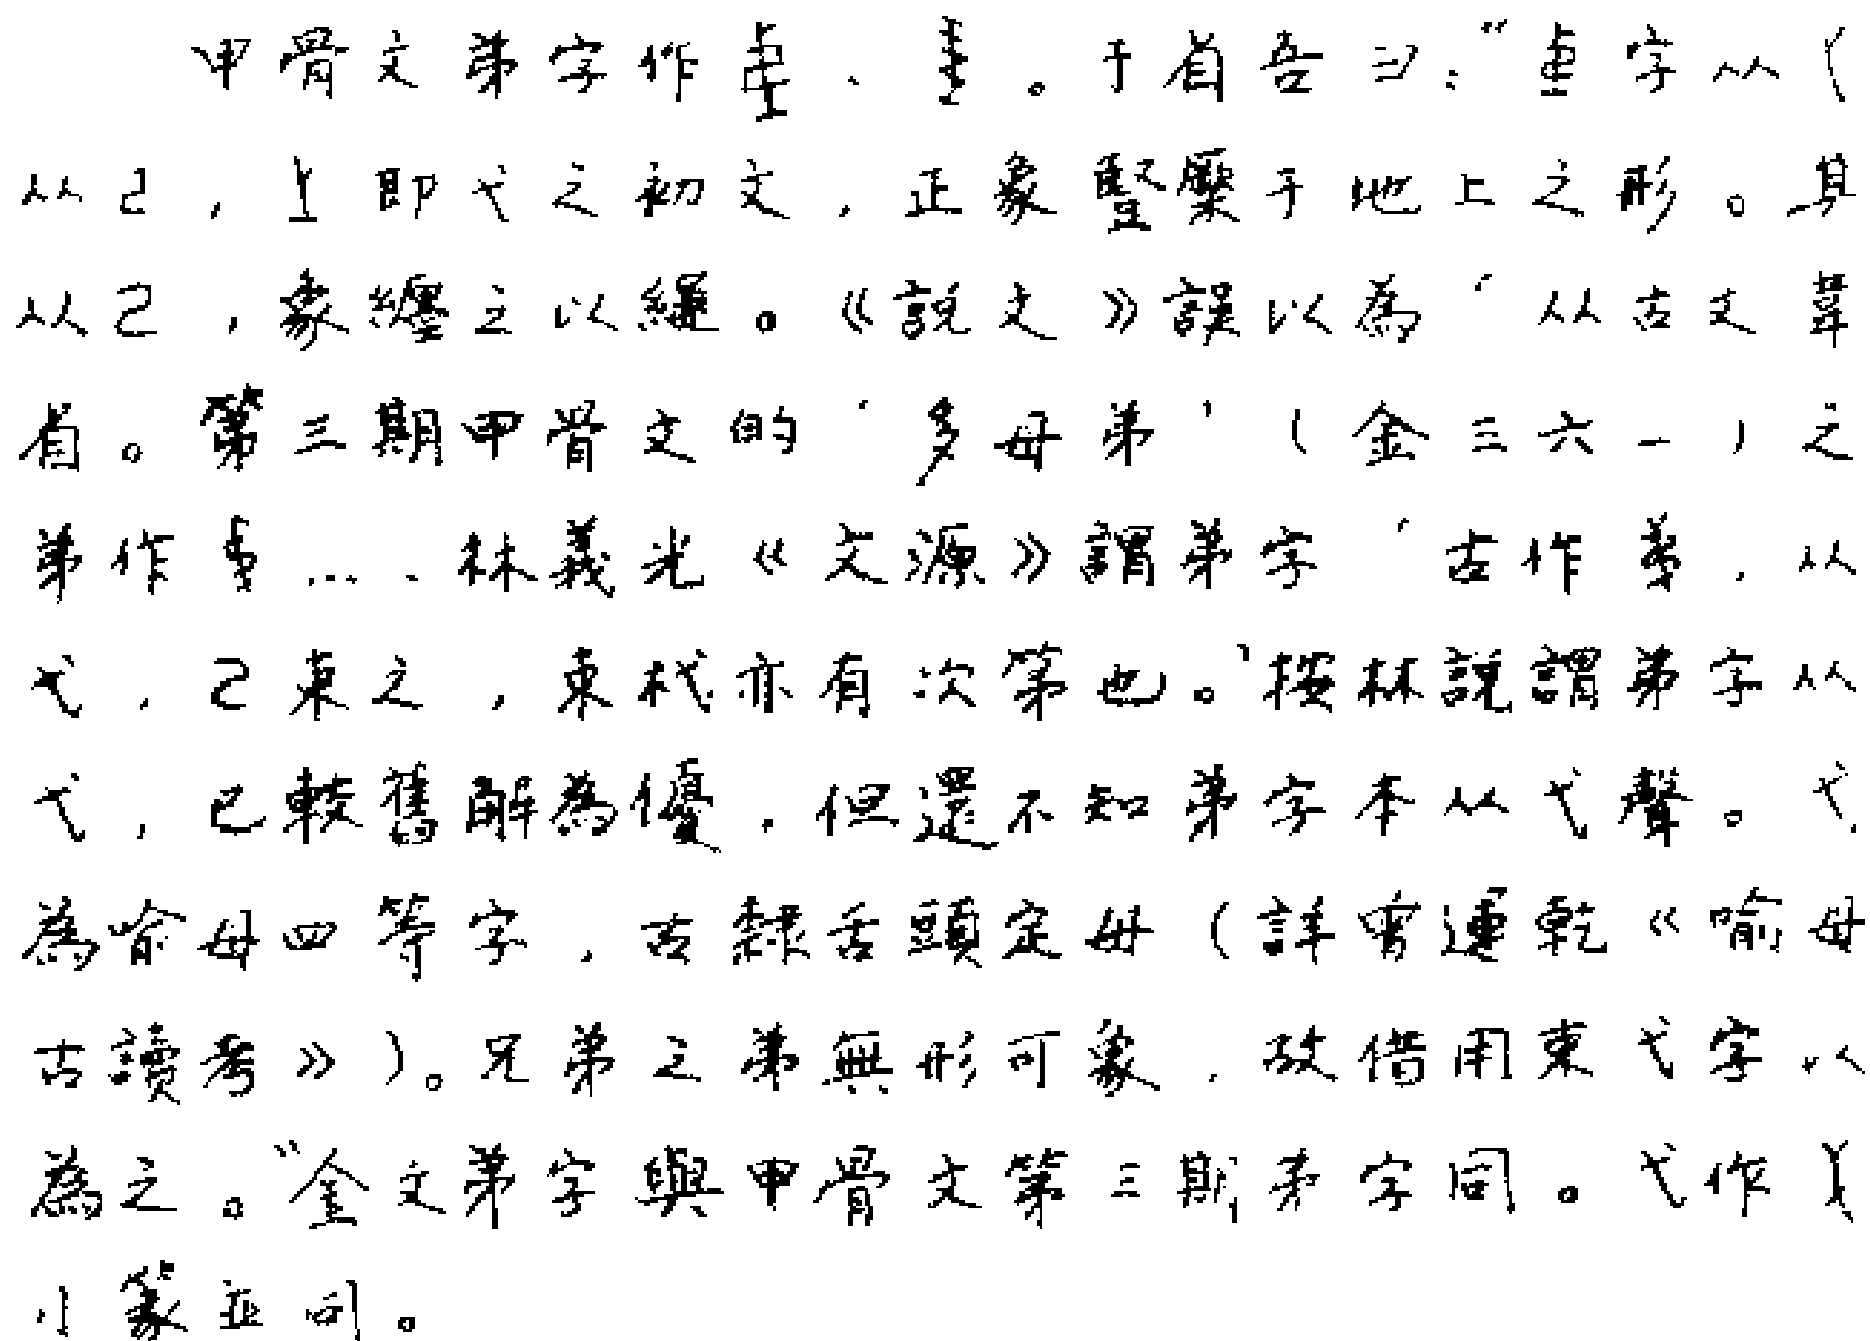 甲骨文弟字作、。于省吾曰:“字从(
从己,即弋之初文,正象豎橜于地上之形。其
从己,象纏之以繩。《說文》誤以為‘从古文韋
省。第三期甲骨文的‘多母弟’(金三六一)之
弟作……林義光《文源》謂弟字‘古作,从
弋,己束之,束杙亦有次第也。’按林說謂弟字从
弋,已較舊解為優,但還不知弟字本从弋聲。弋
為喻母四等字,古隸舌頭定母(詳曾運乾《喻母
古讀考》)。兄弟之弟無形可象,故借用束弋字以
為之。”金文弟字與甲骨文第三期弟字同。弋作
小篆並同。